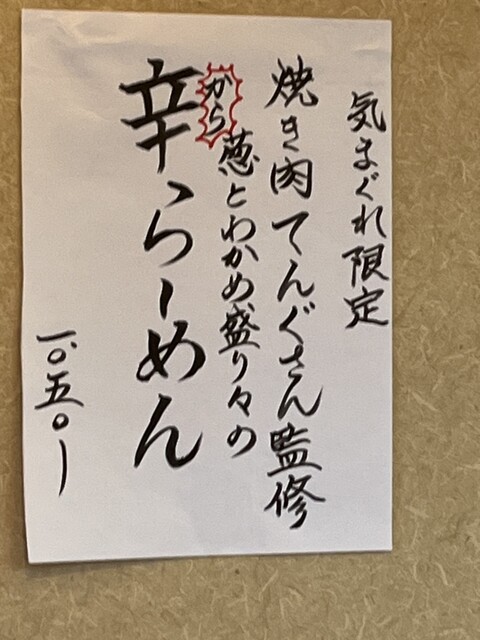 気まぐれ限定
焼き肉てんぐさん監修
から
葱とわかめ盛り々の
辛いらーめん
一、〇五〇ー